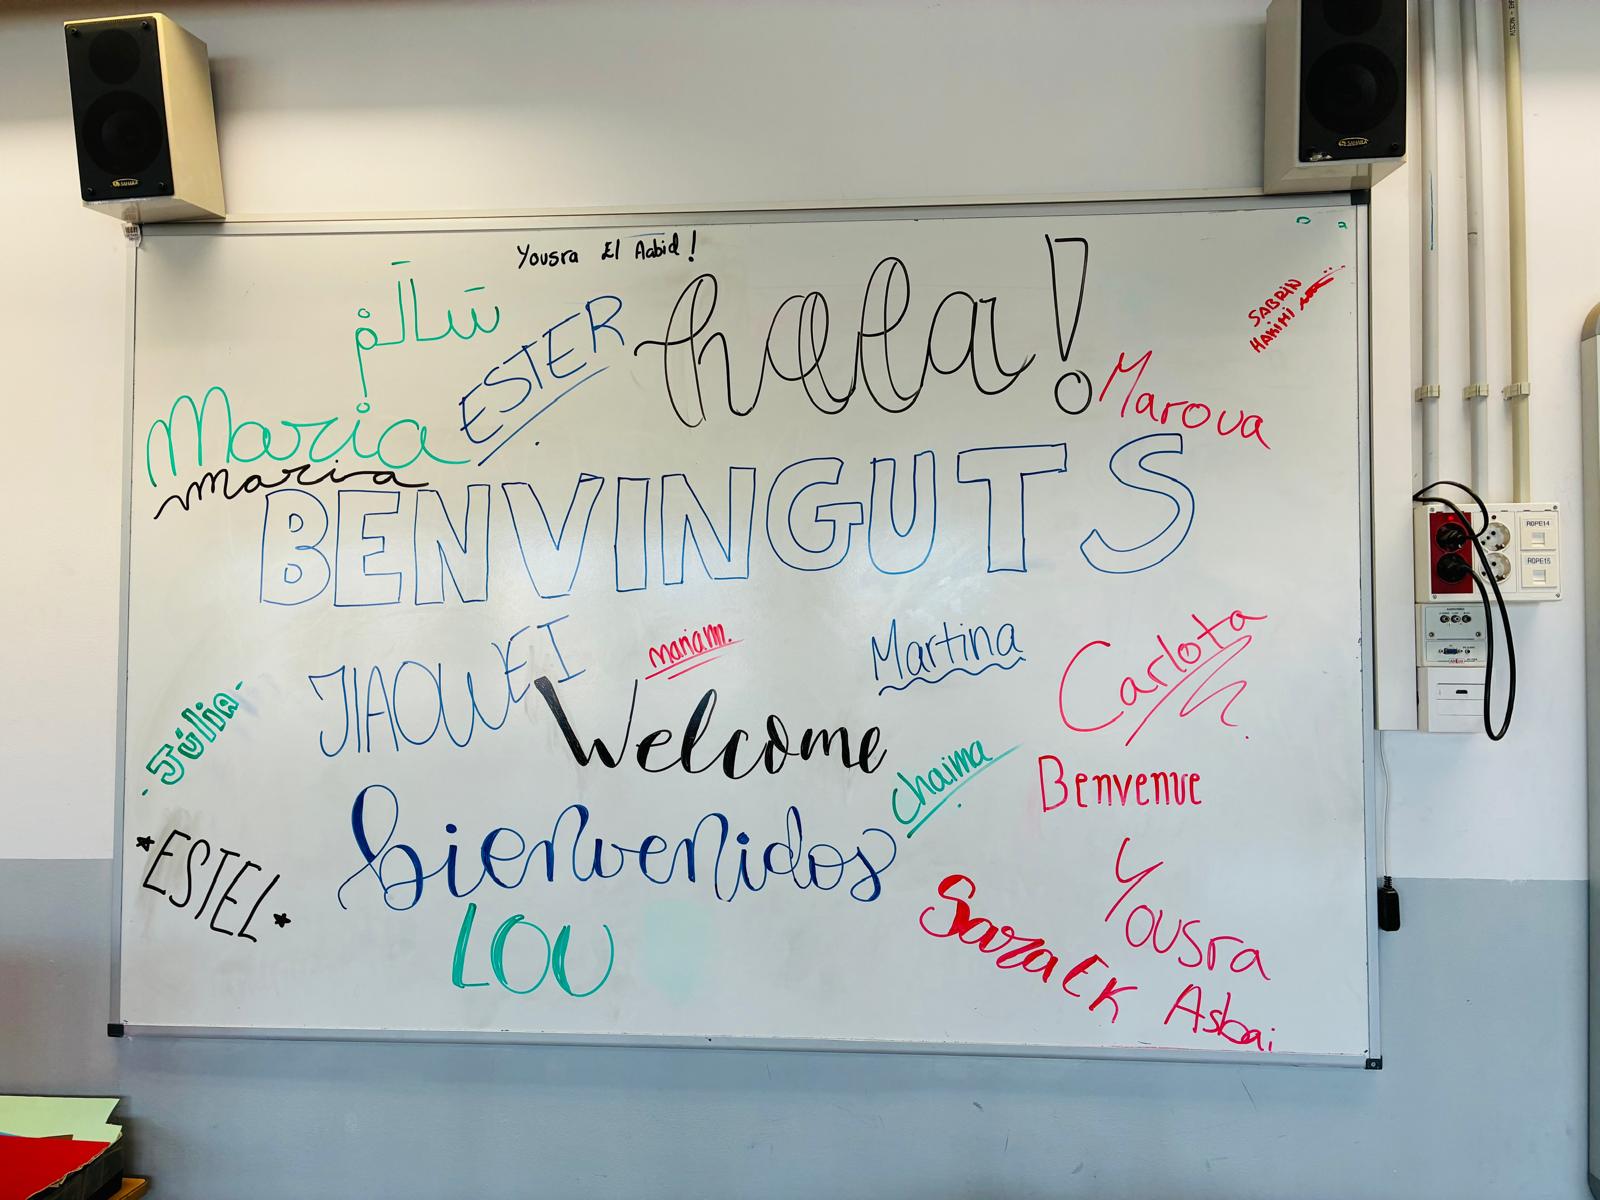 Yousra El Aabid!
سَالَمْ
ESTER
hola!
SABRIN
HAKIMI
Maroua
Maria
maria
BENVINGUTS
JIAOWEI
mariam.
Martina
Carlota
Júlia
Welcome
chaima
Benvenue
*ESTEL*
bienvenidos
LOU
Sara EK
Yousra
Asbai
ROPE14
ROPE15